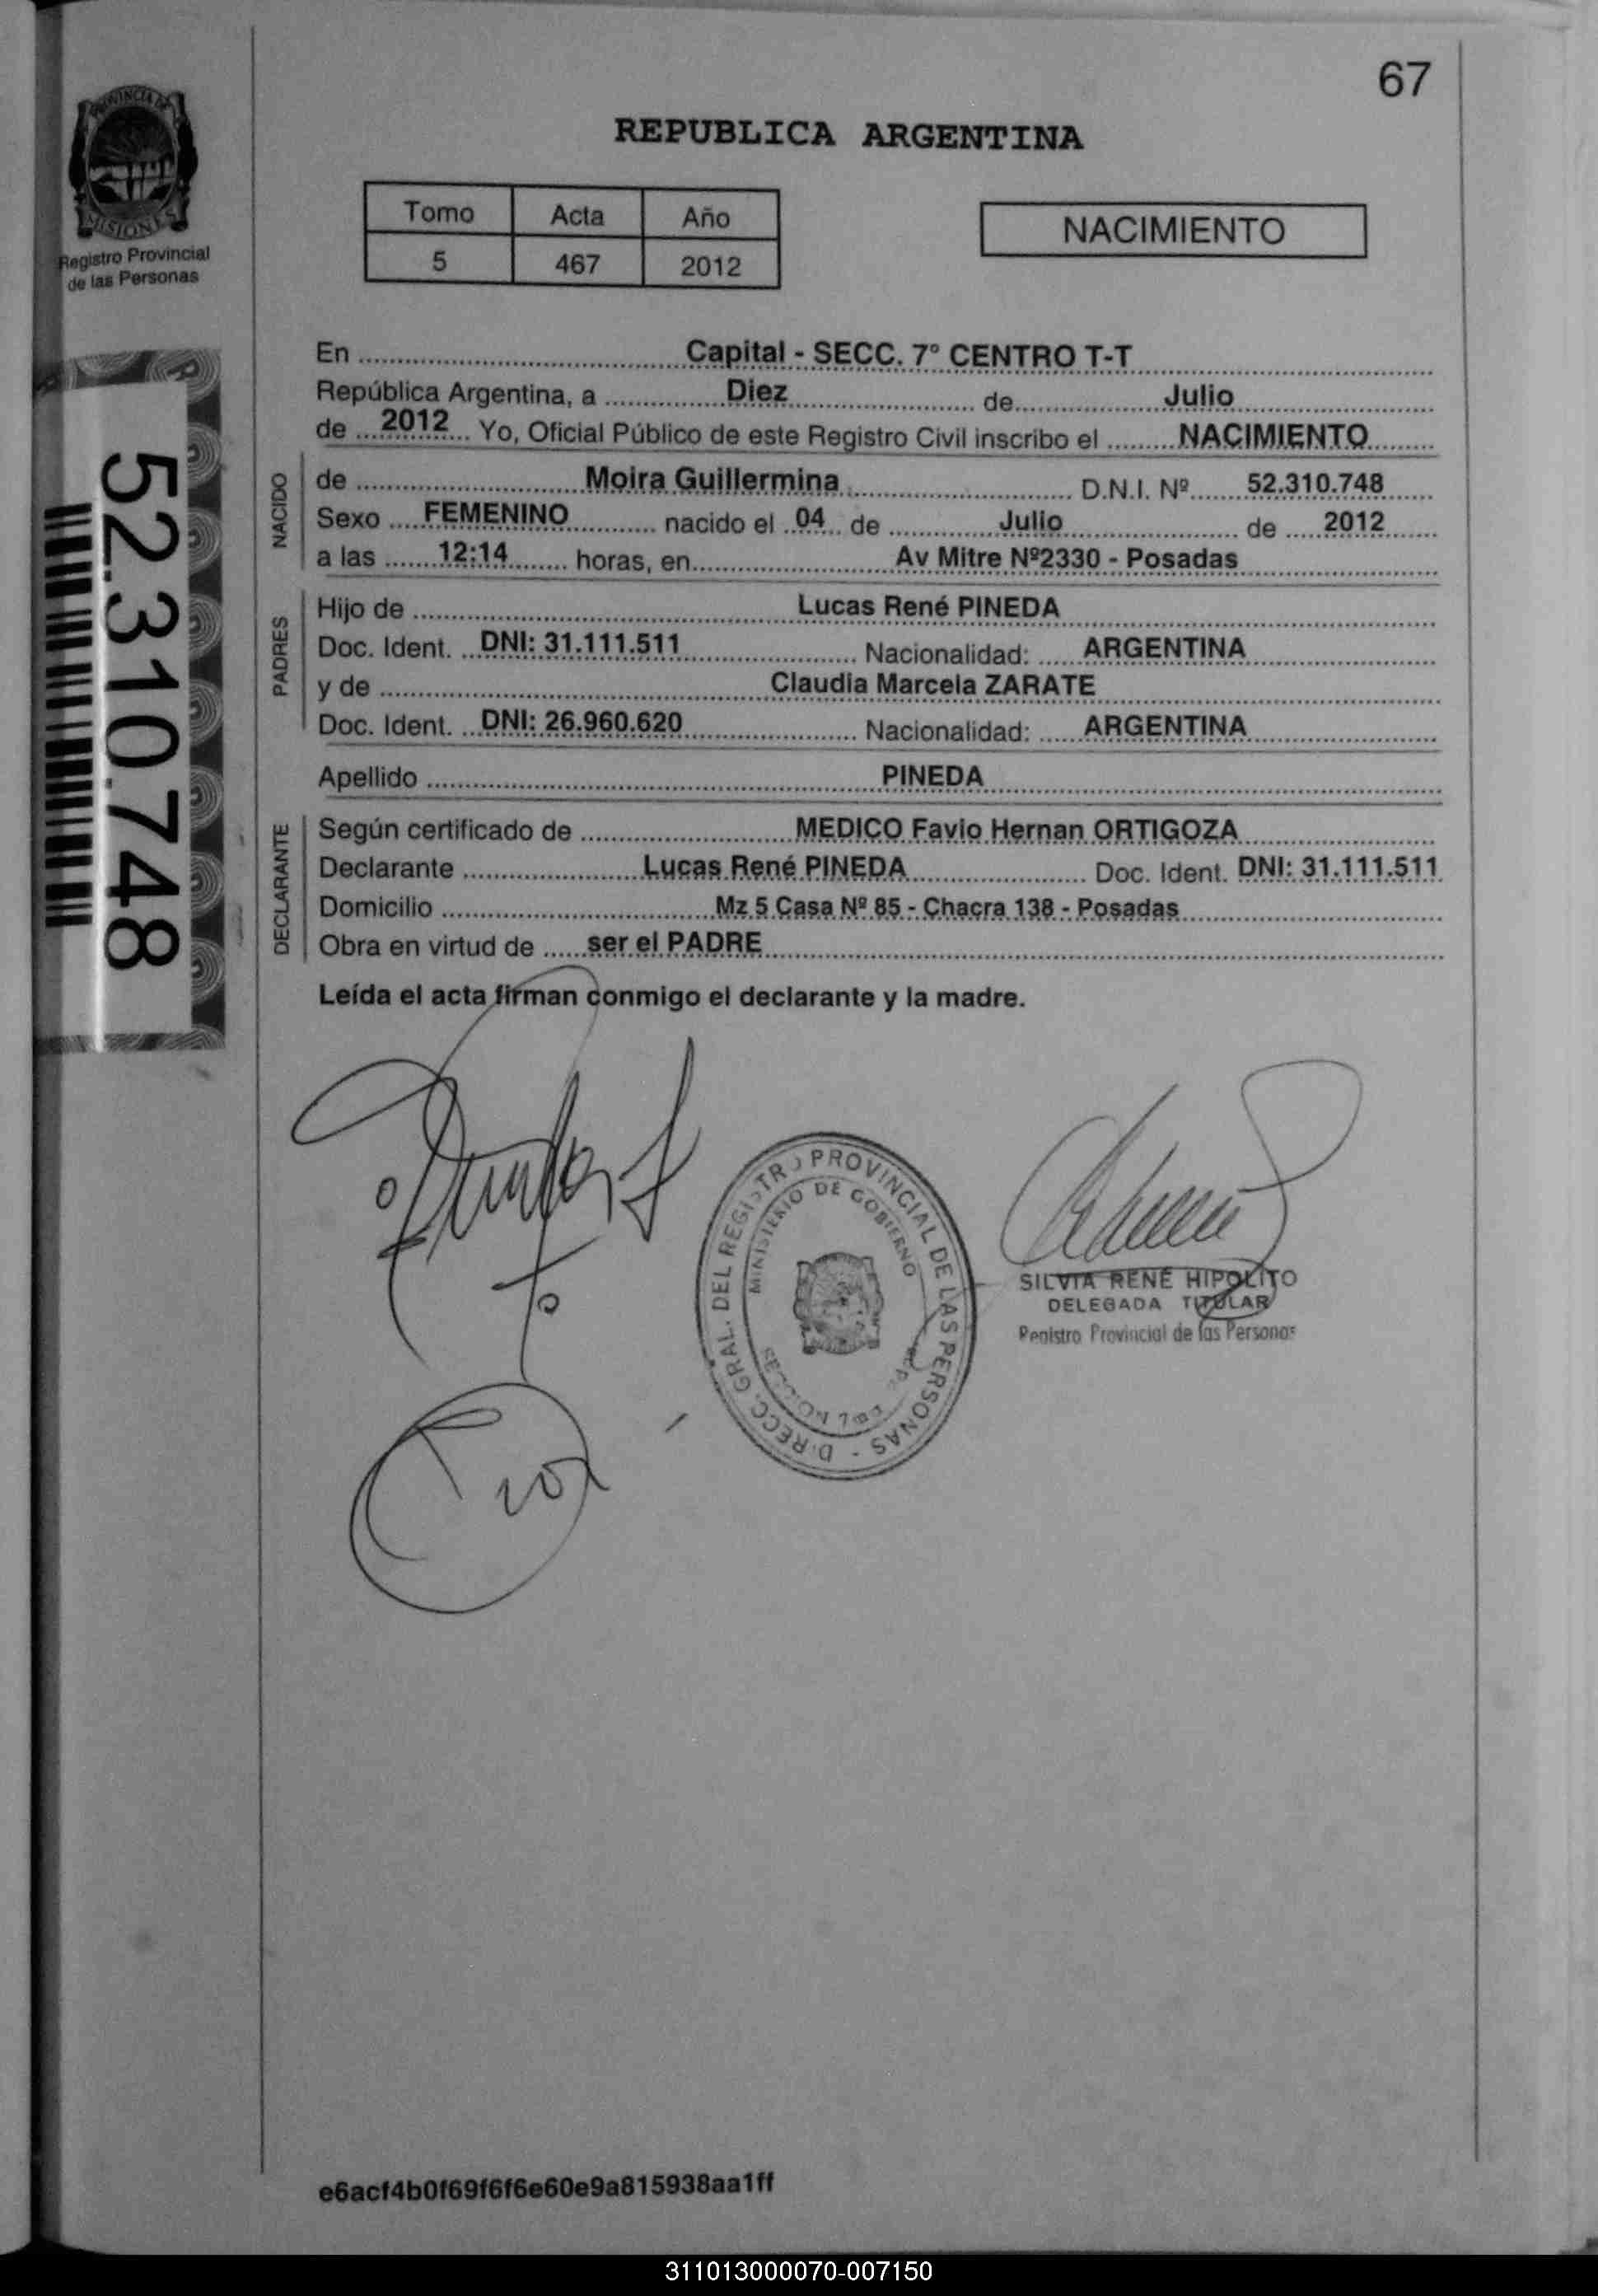 67
PROVINCIA DE
MISIONES
Registro Provincial
de las Personas
REPUBLICA ARGENTINA
Tomo Acta Año
5 467 2012
NACIMIENTO
52.310.748
En Capital - SECC. 7° CENTRO T-T
República Argentina, a Diez de Julio
de 2012 Yo, Oficial Público de este Registro Civil inscribo el NACIMIENTO
NACIDO
de Moira Guillermina D.N.I. Nº 52.310.748
Sexo FEMENINO nacido el 04 de Julio de 2012
a las 12:14 horas, en Av Mitre Nº2330 - Posadas
PADRES
Hijo de Lucas René PINEDA
Doc. Ident. DNI: 31.111.511 Nacionalidad: ARGENTINA
y de Claudia Marcela ZARATE
Doc. Ident. DNI: 26.960.620 Nacionalidad: ARGENTINA
Apellido PINEDA
DECLARANTE
Según certificado de MEDICO Favio Hernan ORTIGOZA
Declarante Lucas René PINEDA Doc. Ident. DNI: 31.111.511
Domicilio Mz 5 Casa Nº 85 - Chacra 138 - Posadas
Obra en virtud de ser el PADRE
Leída el acta firman conmigo el declarante y la madre.
DIRECC. GRAL. DEL REGISTRO PROVINCIAL DE LAS PERSONAS -
MINISTERIO DE GOBIERNO
SILVIA RENÉ HIPOLITO
DELEGADA TITULAR
Registro Provincial de las Personas
e6acf4b0f69f6f6e60e9a815938aa1ff
311013000070-007150